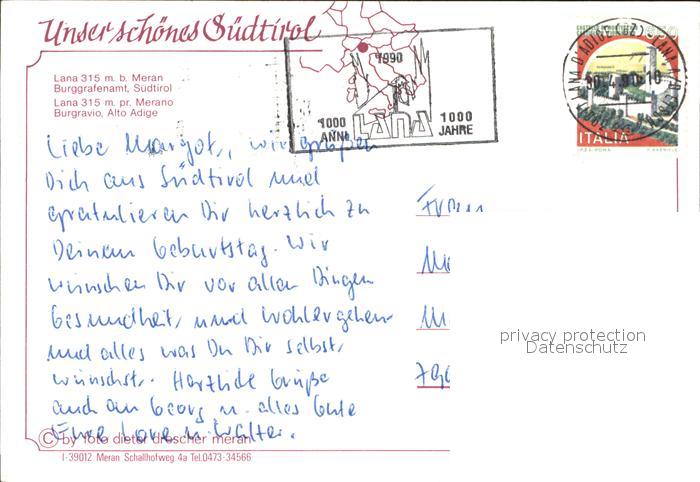 Unser schönes Südtirol
Lana 315 m. b. Meran
Burggrafenamt, Südtirol
Lana 315 m. pr. Merano
Burgravio, Alto Adige
1990
1000
ANNI
LANA
1000
JAHRE
ITALIA
Liebe Margot, wir grüßen
Dich aus Südtirol und
gratulieren Dir herzlich zu
Deinem Geburtstag. Wir
wünschen Dir vor allen Dingen
Gesundheit, und Wohlergehen
und alles was Du Dir selbst
wünschst. Herzliche Grüße
auch an Georg u. alles Gute
Eure Lore u. Walter.
Frau
privacy protection
Datenschutz
© by foto dieter drescher meran
I-39012 Meran Schallhofweg 4a Tel.0473-34566